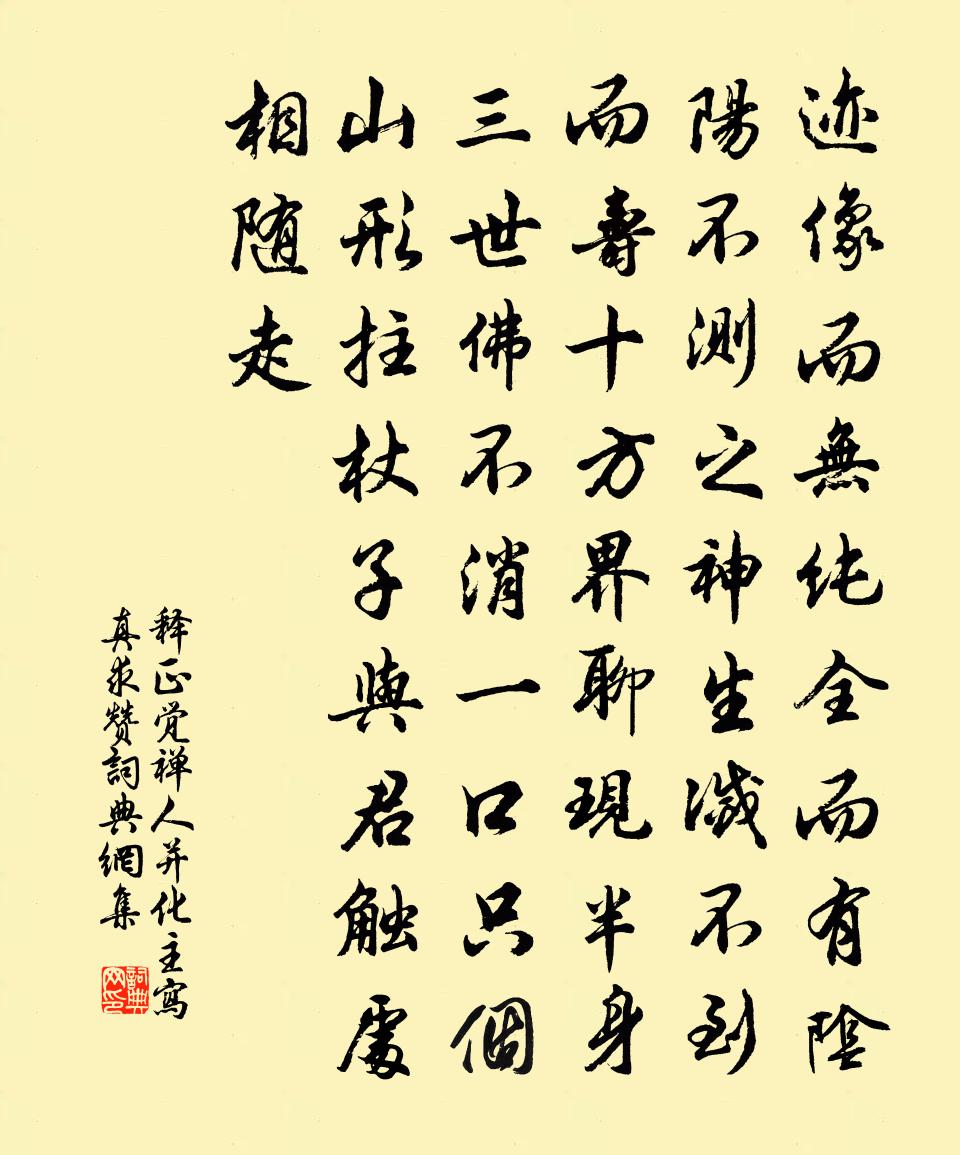 迹像而無纯全而有陰
陽不測之神生滅不到
而壽十方界聊現半身
三世佛不消一口只個
山形拄杖子與君触處
相随走
释正觉禅人并化主寫
真求赞詞典網集
詞典
网印